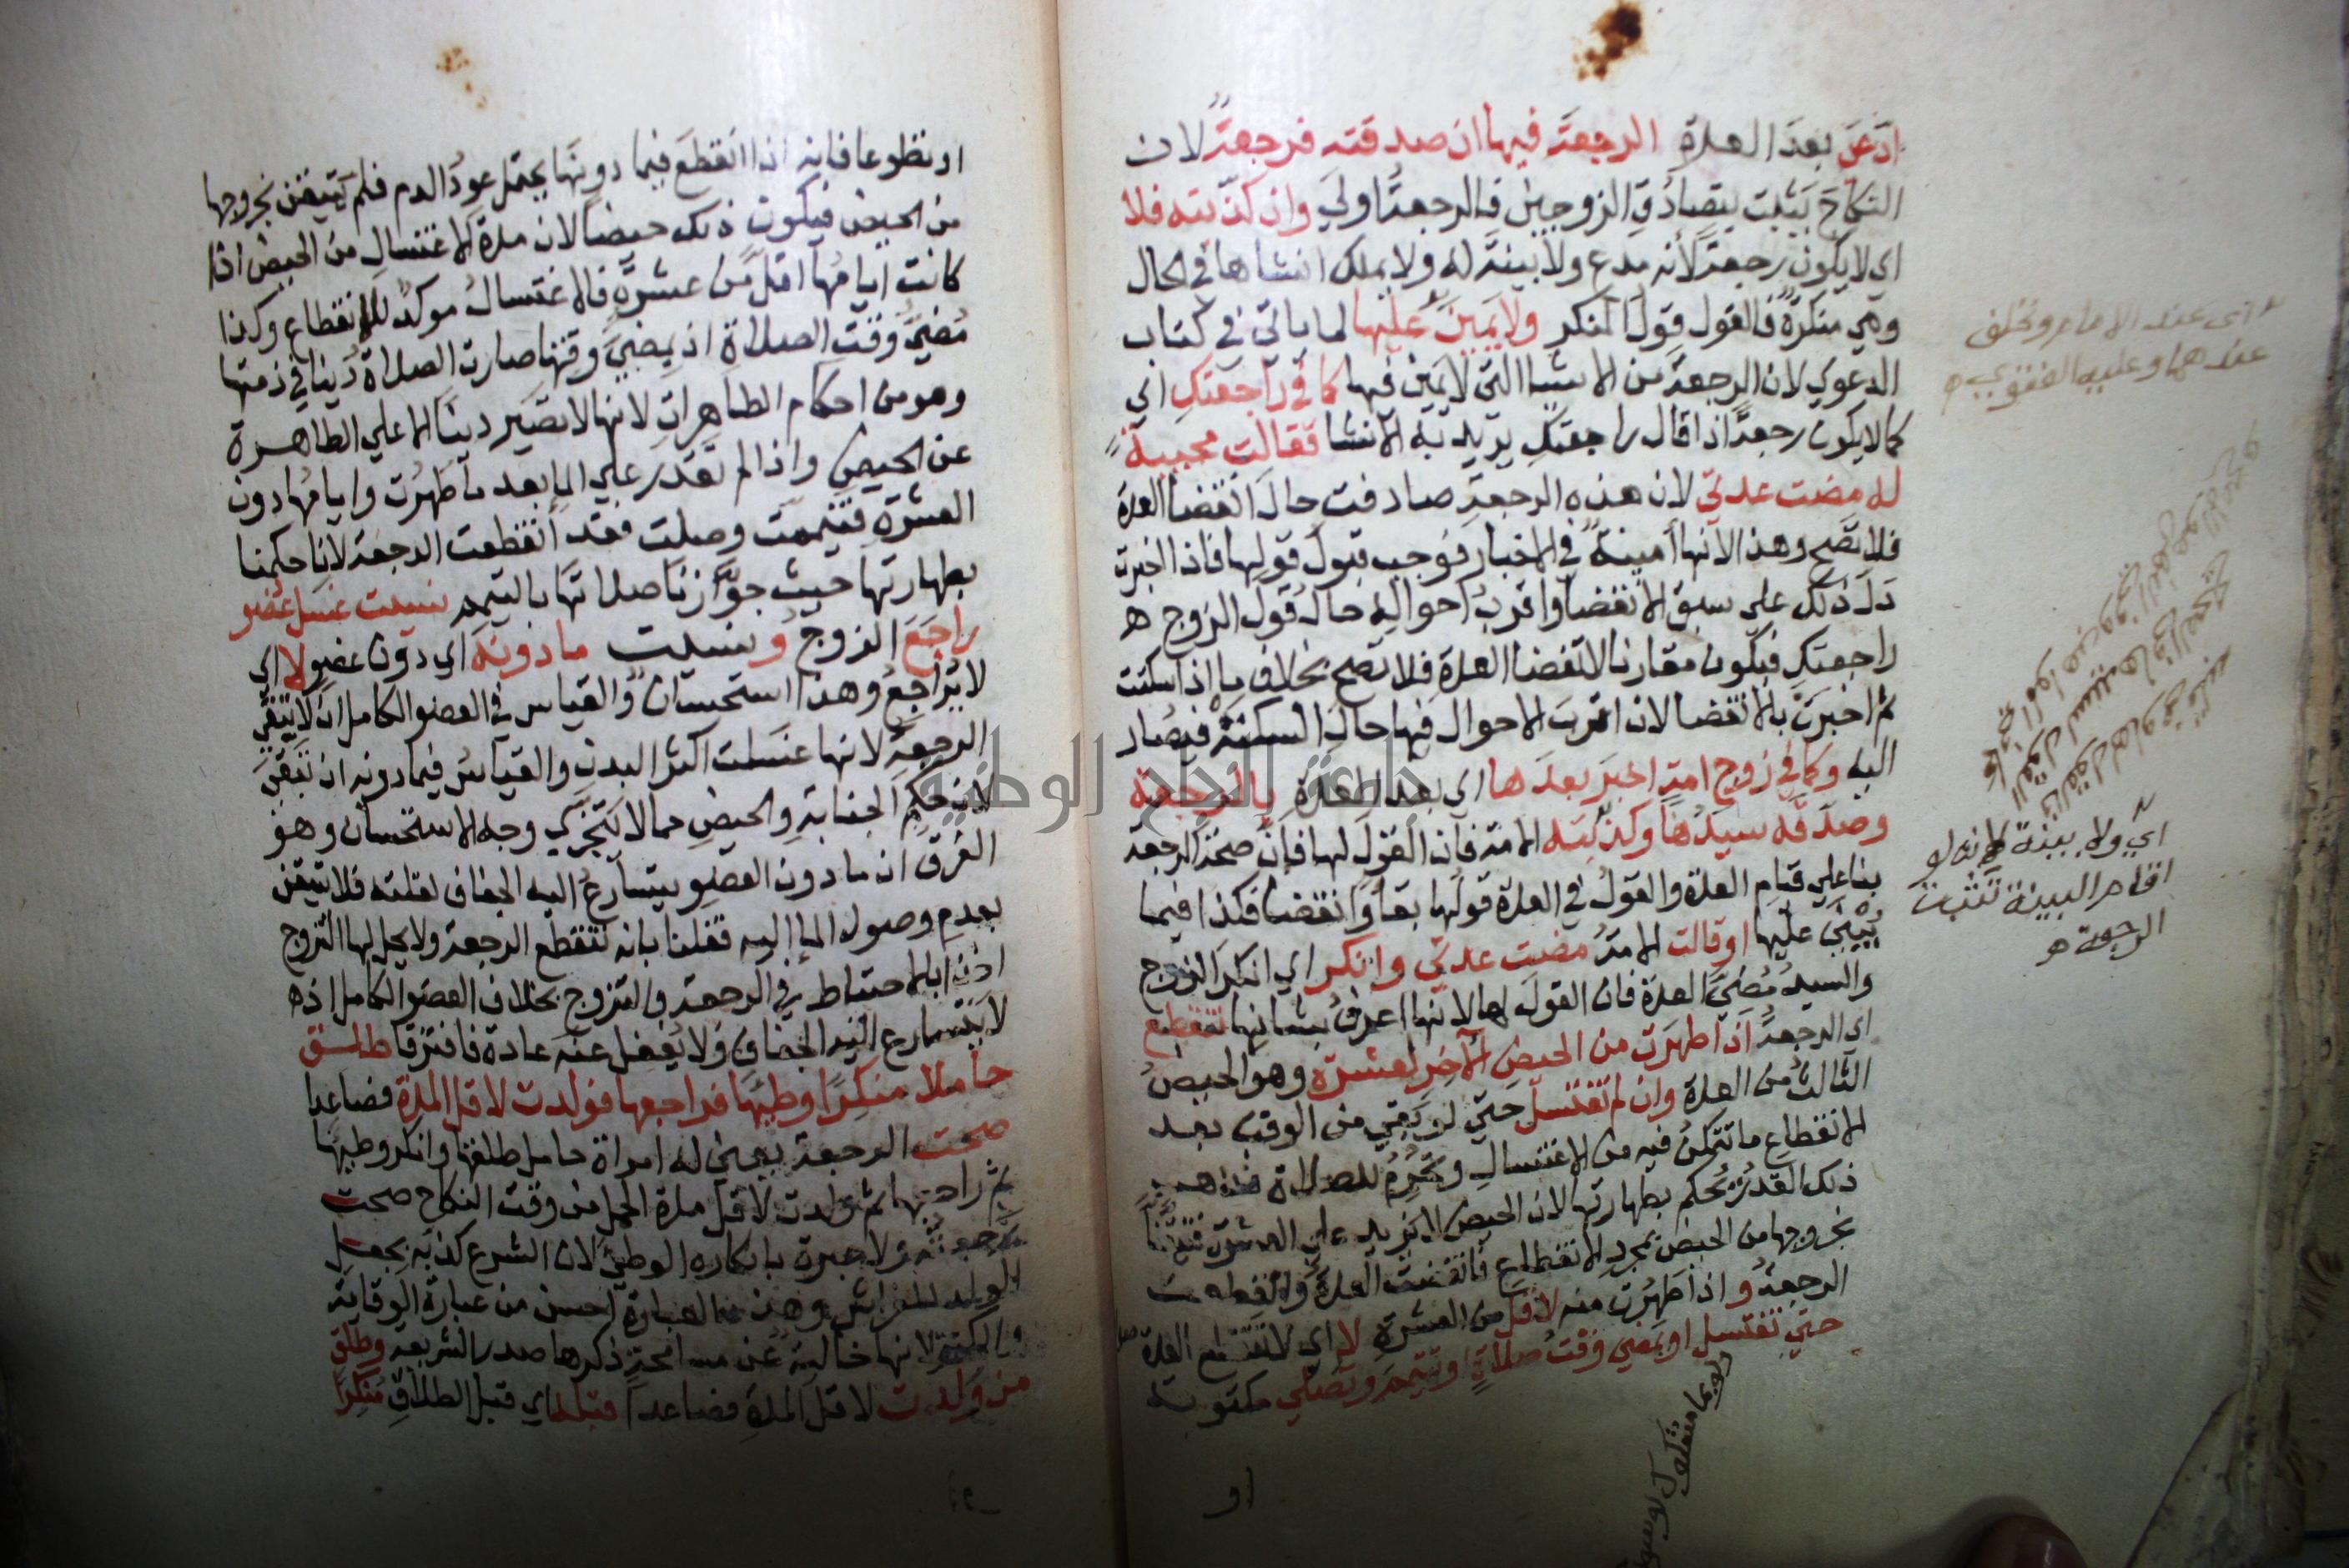 ادعى بعد العدة الرجعة فيها ان صدقته فرجعة لان
النكاح يثبت بتصادق الزوجين فالرجعة اولي وان كذبته فلا
اي لا يكون رجعة لأنه مدع ولا بينة له ولا يملك انشاها في الحال
وهي منكرة فالقول قول المنكر ولا يمين عليها لما ياتي في كتاب
الدعوي لان الرجعة من الاشيا التي لا يمين فيها كما في راجعتك اي
كما لا يكون رجعة اذا قال راجعتك يريد به الانشا فقالت مجيبة
له مضت عدتي لان هذه الرجعة صادفت حال انقضا العدة
فلا تصح وهذا لانها أمينة في الاخبار فوجب قبول قولها فاذا اخبرت
دل ذلك على سبق الانقضا واقرب احواله حال قول الزوج
راجعتك فيكون مقارنا لانقضا العدة فلا تصح بخلاف ما اذا سكتت
ثم اخبرت بالانقضا لان اقرب الاحوال فيها حال السكتة فيصار
اليه وكما في زوج امة اخبر بعدها اي بعد العدة بالرجعة
وصدقه سيدها وكذبته الامة فان القول لها فان صحة الرجعة
بنا علي قيام العدة والقول في العدة قولها بقا وانقضا فكذا فيما
يبني عليها او قالت الامة مضت عدتي وانكر اي انكر الزوج
والسيد مضي العدة فان القول لها لانها اعرف بشانها تنقطع
اي الرجعة اذا طهرت من الحيض الآخر لعشرة وهو الحيض
الثالث من العدة وان لم تغتسل حتي لو بقي من الوقت بعد
الانقطاع ما تتمكن فيه من الاغتسال وتحرم للصلاة
ذلك القدر يحكم بطهارتها لان الحيض لا يزيد علي العشرة
بخروجها من الحيض بمجرد الانقطاع فانقضت العدة وانقطعت
الرجعة و اذا طهرت منه لاقل من العشرة لا اي لا تنقطع العدة
حتي تغتسل او يمضي وقت صلاة او تتيمم وتصلي مكتوبة
اي عند الامام وتحلف
عندهما وعليه الفتوي
اي ولا بينة لانه لو
اقام البينة تثبت
الرجعة
او تطوعا فانه اذا انقطع فيما دونها يحتمل عود الدم فلم يتيقن بخروجها
من الحيض فيكون ذلك حيضا لان مدة الاغتسال من الحيض اذا
كانت ايامها اقل من عشرة فالاغتسال موكد للانقطاع وكذا
مضي وقت الصلاة اذ بمضي وقتها صارت الصلاة دينا في ذمتها
وهو من احكام الطاهرات لانها لا تصير دينا الا علي الطاهرة
عن الحيض واذا لم تقدر علي الما بعد ما طهرت وايامها دون
العشرة فتيممت وصلت فقد انقطعت الرجعة لانا حكمنا
بطهارتها حيث جوزنا صلاتها بالتيمم نسيت غسل عضو
راجع الزوج و نسيت ما دونه اي دون عضو لا اي
لا يراجع وهذا استحسان والقياس في العضو الكامل ان لا تبقي
الرجعة لانها غسلت اكثر البدن والقياس فيما دونه ان تبقى
لان حكم الجنابة والحيض مما لا يتجزي وجه الاستحسان وهو
الفرق ان ما دون العضو يتسارع اليه الجفاف لقلته فلا تتيقن
بعدم وصول الما اليه فقلنا بانه تنقطع الرجعة ولا يحل لها التزوج
اخذا بالاحتياط في الرجعة والتزوج بخلاف العضو الكامل اذ
لا يتسارع اليه الجفاف ولا يغفل عنه عادة فافترقا طلق
حاملا منكرا وطيها فراجعها فولدت لاقل المدة فصاعدا
صحت الرجعة يعني له امراة حامل طلقها وانكر وطيها
ثم راجعها ثم ولدت لاقل مدة الحمل من وقت النكاح صحت
رجعته ولا عبرة بانكاره الوطي لان الشرع كذبه بجعل
الولد للفراش وهذه العبارة احسن من عبارة الوقاية
والكنز لانها خالية عن مسامحة ذكرها صدر الشريعة وطلق
من ولدت لاقل المدة فصاعدا قبله اي قبل الطلاق منكرا
جامعة النجاح الوطنية